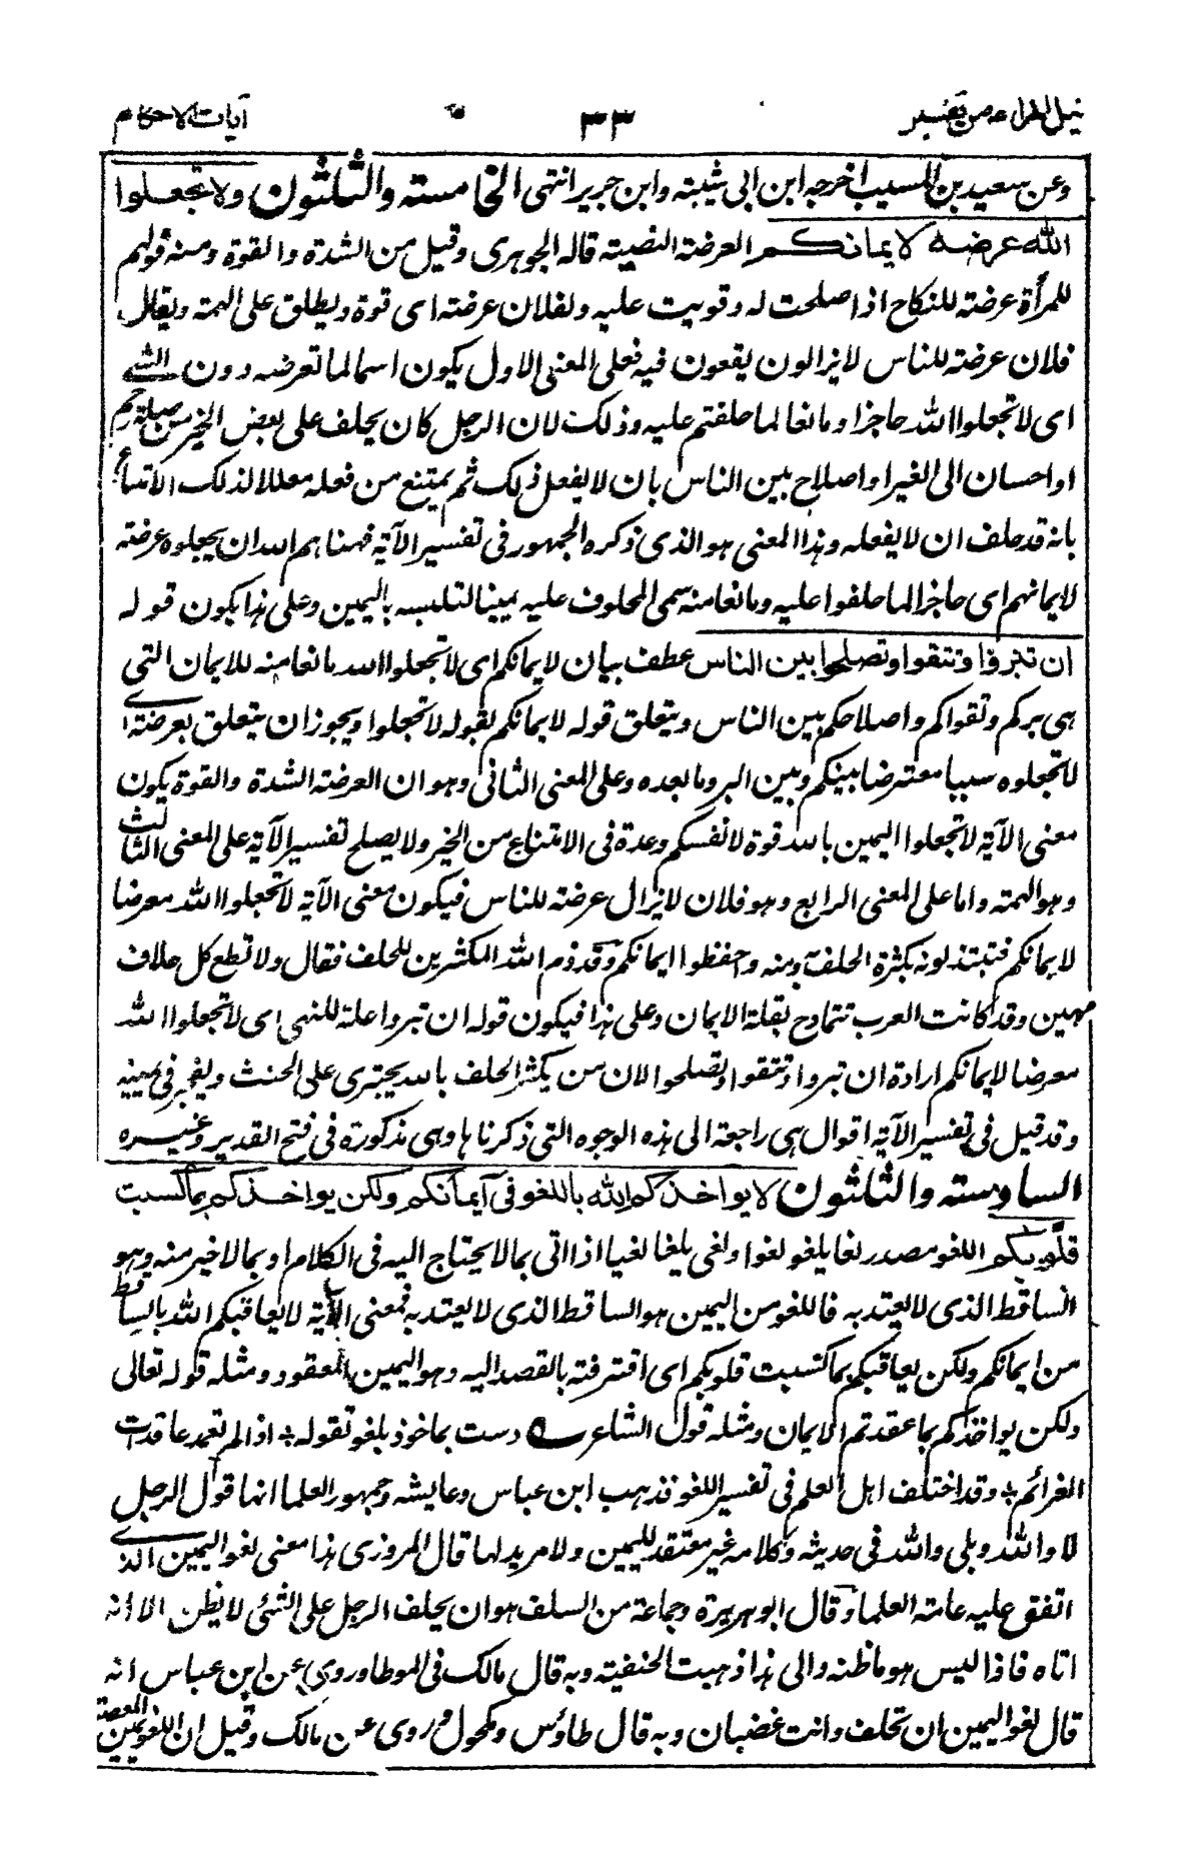 نيل المرام من تفسير ٣٣ آيات الاحكام
وعن سعيد بن المسيب اخرجه ابن ابى شيبة وابن جرير انتهى الخامسة والثلثون ولا تجعلوا
الله عرضة لايمانكم العرضة النصبة قاله الجوهرى وقيل من الشدة والقوة ومنه قولهم
للمرأة عرضة للنكاح اذا صلحت له وقويت عليه ولفلان عرضة اى قوة ويطلق على الهمة ويقال
فلان عرضة للناس لا يزالون يقعون فيه فعلى المعنى الاول يكون اسما لما تعرضه دون الشئ
اى لا تجعلوا الله حاجزا ومانعا لما حلفتم عليه وذلك لان الرجل كان يحلف على بعض الخير من صلة رحم
او احسان الى الغير او اصلاح بين الناس بان لا يفعل ذلك ثم يمتنع من فعله معللا لذلك الامتناع
بانه قد حلف ان لا يفعله وهذا المعنى هو الذى ذكره الجمهور فى تفسير الآية فنهاهم الله ان يجعلوه عرضة
لايمانهم اى حاجزا لما حلفوا عليه ومانعا منه سمى المحلوف عليه يمينا لتلبسه باليمين وعلى هذا يكون قوله
ان تبروا وتتقوا وتصلحوا بين الناس عطف بيان لايمانكم اى لا تجعلوا الله مانعا منه للايمان التى
هى بركم وتقواكم واصلاحكم بين الناس ويتعلق قوله لايمانكم بقوله لا تجعلوا ويجوز ان يتعلق بعرضة اى
لا تجعلوه سببا معترضا بينكم وبين البر وما بعده وعلى المعنى الثانى وهو ان العرضة الشدة والقوة يكون
معنى الآية لا تجعلوا اليمين بالله قوة لانفسكم وعدة فى الامتناع من الخير ولا يصلح تفسير الآية على المعنى الثالث
وهو الهمة واما على المعنى الرابع وهو فلان لا يزال عرضة للناس فيكون معنى الآية لا تجعلوا الله معرضا
لايمانكم فتبتذلونه بكثرة الحلف ومنه واحفظوا ايمانكم وقد ذم الله المكثرين للحلف فقال ولا تطع كل حلاف
مهين وقد كانت العرب تتمادح بقلة الايمان وعلى هذا فيكون قوله ان تبروا علة للنهى اى لا تجعلوا الله
معرضا لايمانكم ارادة ان تبروا وتتقوا وتصلحوا لان من يكثر الحلف بالله يجترى على الحنث ويفجر فى يمينه
وقد قيل فى تفسير الآية اقوال هى راجعة الى هذه الوجوه التى ذكرناها وهى مذكورة فى فتح القدير وغيره
السادسة والثلثون لا يواخذكم الله باللغو فى ايمانكم ولكن يواخذكم بما كسبت
قلوبكم اللغو مصدر لغا يلغو لغوا ولغى يلغا لغيا اذا اتى بما لا يحتاج اليه فى الكلام او بما لا خير منه وهو
الساقط الذى لا يعتد به فاللغو من اليمين هو الساقط الذى لا يعتد به فمعنى الآية لا يعاقبكم الله بالساقط
من ايمانكم ولكن يعاقبكم بما كتسبت قلوبكم اى اقترفته بالقصد اليه وهو اليمين المعقود ومثله قوله تعالى
ولكن يواخذكم بما عقدتم الايمان ومثله قول الشاعر ولست بماخوذ بلغو تقوله اذا لم تعمد عاقدات
العزائم وقد اختلف اهل العلم فى تفسير اللغو فذهب ابن عباس وعايشه وجمهور العلما انها قول الرجل
لا والله وبلى والله فى حديثه وكلامه غير معتقد لليمين ولا مريد لها قال المروزى هذا معنى لغو اليمين الذى
اتفق عليه عامة العلما وقال ابو هريرة وجماعة من السلف هو ان يحلف الرجل على الشئ لا يظن الا انه
اتاه فاذا ليس هو ما ظنه والى هذا ذهبت الحنفية وبه قال مالك فى الموطا وروى عن ابن عباس انه
قال لغو اليمين ان تحلف وانت غضبان وبه قال طاؤس ومكحول وروى عن مالك وقيل ان اللغو يمين المعصية